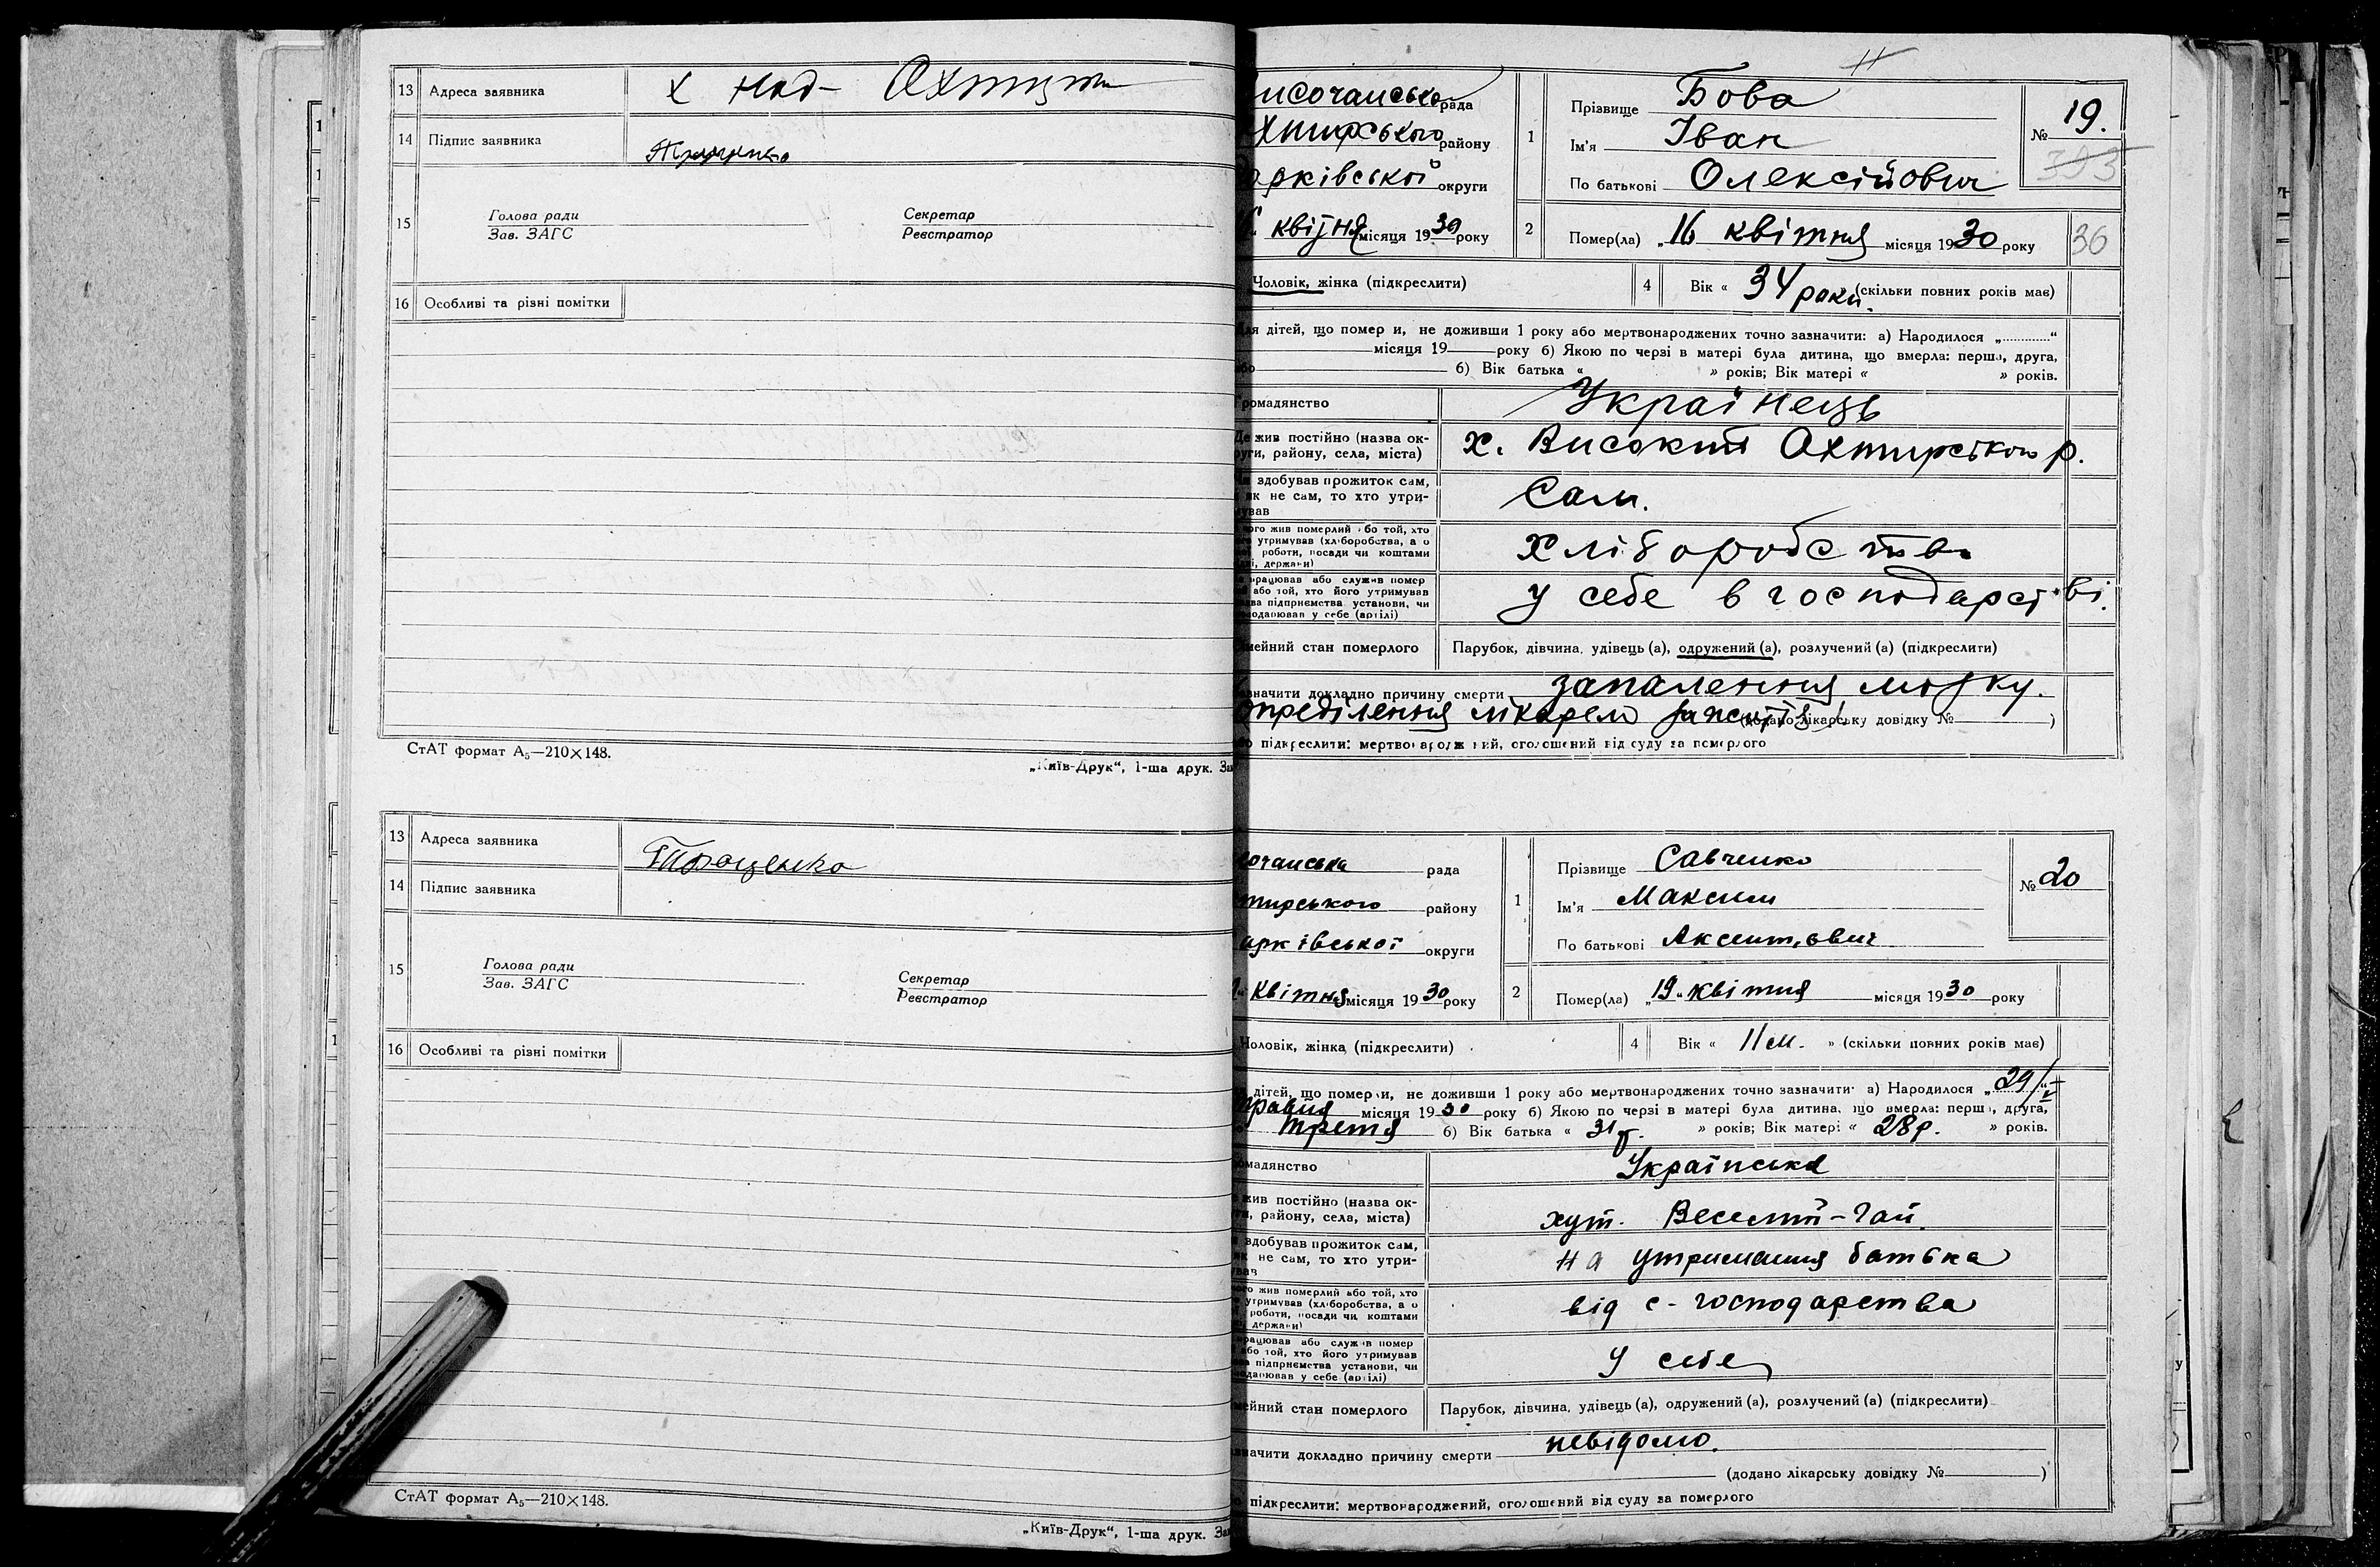 13 Адреса заявника х
14 Підпис заявника
15 Голова ради Секретар
Зав. ЗАГС Реєстратор
16 Особливі та різні помітки
СтАТ формат А5—210×148.
„Київ-Друк“, 1-ша друк.
13 Адреса заявника
14 Підпис заявника
15 Голова ради Секретар
Зав. ЗАГС Реєстратор
16 Особливі та різні помітки
СтАТ формат А5—210×148.
„Київ-Друк“, 1-ша друк.
рада
району
округи
квітня місяця 1930 року
1 Прізвище Бова
Ім'я Іван
По батькові Олексійович
№ 19.
2 Помер(ла) „16 квітня місяця 1930 року
36
Чоловік, жінка (підкреслити)
4 Вік « 34 роки. (скільки повних років має)
дітей, що померли, не доживши 1 року або мертвонароджених точно зазначити: а) Народилося „............“
місяця 19 року б) Якою по черзі в матері була дитина, що вмерла: перша, друга,
б) Вік батька « » років; Вік матері « » років.
громадянство Українець
Де жив постійно (назва округи, району, села, міста) х. Високий Охтирського р.
здобував прожиток сам,
як не сам, то хто утри-
Сам.
жив померлий або той, хто
утримував (хліборобства, а о
роботи, посади чи коштами
Хліборобство
працював або служив помер
або той, хто його утримував
підприємства установи, чи
у себе (артілі)
у себе в господарстві.
стан померлого Парубок, дівчина, удівець (а), одружений (а), розлучений (а) (підкреслити)
докладно причину смерти запалення мозку.
опреділення лікарем (додано лікарську довідку № )
підкреслити: мертвонароджений, оголошений від суду за померлого
рада
району
округи
Квітня місяця 1930 року
1 Прізвище Савченко
Ім'я Максим
По батькові
№ 20
2 Помер(ла) „19“ квітня місяця 1930 року
Чоловік, жінка (підкреслити)
4 Вік « 11 м. » (скільки повних років має)
дітей, що померли, не доживши 1 року або мертвонароджених точно зазначити: а) Народилося „29/V
травня місяця 1930 року б) Якою по черзі в матері була дитина, що вмерла: перша, друга,
третя б) Вік батька « 31 р. » років; Вік матері « 28 р. » років.
Українська
жив постійно (назва ок-
району, села, міста)
хут. Веселий-Гай.
здобував прожиток сам,
не сам, то хто утри-
на утримання батька
жив померлий або той, хто
утримував (хліборобства, а о
роботи, посади чи коштами
держави)
від с-господарства
або служив помер
або той, хто його утримував
підприємства установи, чи
у себе (артілі)
у себе
стан померлого Парубок, дівчина, удівець (а), одружений (а), розлучений (а) (підкреслити)
докладно причину смерти невідомо.
(додано лікарську довідку № )
підкреслити: мертвонароджений, оголошений від суду за померлого